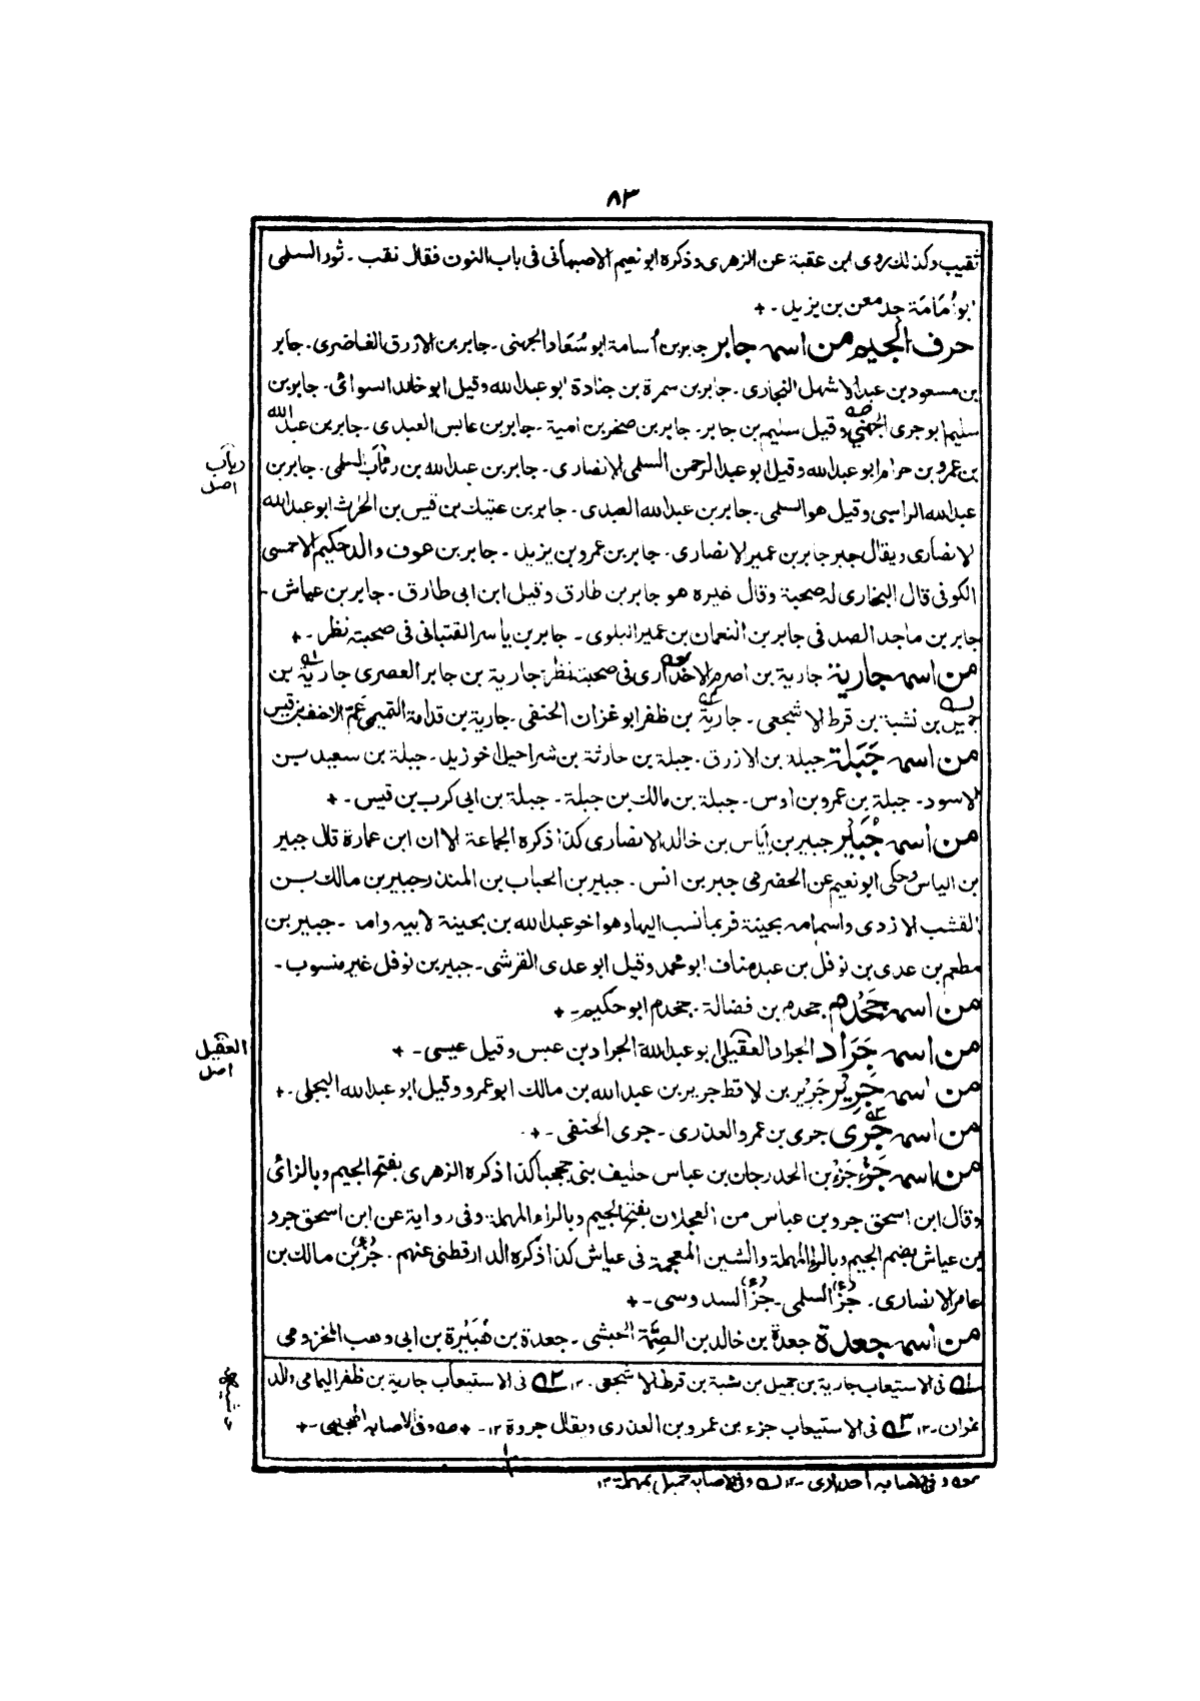 ٨٣
ثقيب وكذلك روى ابن عقبة عن الزهرى وذكره ابو نعيم الاصبهانى فى باب النون فقال نقب ـ ثور السلمى
ابو أمَامَة جد معن بن يزيد ـ +
حرف الجيم من اسمه جابر جابر بن أسامة ابو سُعَاد الجهنى ـ جابر بن الازرق الغاضرى ـ جابر
بن مسعود بن عبد الاشهل النجارى ـ جابر بن سمرة بن جنادة ابو عبد الله وقيل ابو خالد السوائى ـ جابر بن
سليم ابو جرى الجهنى وقيل سليم بن جابر ـ جابر بن صخر بن امية ـ جابر بن عابس العبدى ـ جابر بن عبد الله
بن عمرو بن حرام ابو عبد الله وقيل ابو عبد الرحمن السلمى الانصارى ـ جابر بن عبد الله بن رئاب السلمى ـ جابر بن
رياب
اصل
عبد الله الراسبى وقيل هو السلمى ـ جابر بن عبد الله العبدى ـ جابر بن عتيك بن قيس بن الحٰرث ابو عبد الله
الانصارى ويقال جبر جابر بن عمير الانصارى ـ جابر بن عمرو بن يزيد ـ جابر بن عوف والد حكيم الاحمسى
الكوفى قال البخارى له صحبة وقال غيره هو جابر بن طارق وقيل ابن ابى طارق ـ جابر بن عياش ـ
جابر بن ماجد الصدفى جابر بن النعمان بن عمير البلوى ـ جابر بن ياسر القتبانى فى صحبته نظر ـ +
من اسمه جارية جارية بن اصرم الاخدارى فى صحبته نظر جارية بن جابر العصرى جارية بن
جميل بن نشبة بن قرط الاشجعى ـ جارية بن ظفر ابو غزان الحنفى ـ جارية بن قدامة التميمى عم الاحنف بن قيس
من اسمه جَبَلة جبلة بن الازرق ـ جبلة بن حارثة بن شراحيل اخو زيد ـ جبلة بن سعيد بن
الاسود ـ جبلة بن عمرو بن اوس ـ جبلة بن مالك بن جبلة ـ جبلة بن ابى كرب بن قيس ـ +
من اسمه جُبَيْر جبير بن إياس بن خالد الانصارى كذا ذكره الجماعة الا ان ابن عمارة قال جبير
بن الياس وحكى ابو نعيم عن الحضرمى جبر بن انس ـ جبير بن الحباب بن المنذر جبير بن مالك بن
القشب الازدى واسم امه بحينة فربما نسب اليها وهو اخو عبد الله بن بحينة لابيه وامه ـ جبير بن
مطعم بن عدى بن نوفل بن عبد مناف ابو محمد وقيل ابو عدى القرشى ـ جبير بن نوفل غير منسوب ـ
من اسمه جَحْدَم جحدم بن فضالة ـ جحدم ابو حكيم ـ +
من اسمه جَرَاد الجراد العقيلى ابو عبد الله الجراد بن عبس وقيل عيسى ـ +
العقيل
اصل
من اسمه جَرِيْر جَرِيْر بن لاقط جرير بن عبد الله بن مالك ابو عمرو وقيل ابو عبد الله البجلى ـ +
من اسمه جَرى جرى بن عمرو العذرى ـ جرى الحنفى ـ +
من اسمه جَزْء جَزْء بن الحدرجان بن عباس حليف بنى جحجبا كذا ذكره الزهرى بفتح الجيم وبالزائ
وقال ابن اسحق جرو بن عباس من العجلان بفتح الجيم وبالراء المهملة وفى رواية عن ابن اسحق جرو
بن عياش بضم الجيم وبالراء المهملة والشين المعجمة فى عياش كذا ذكره الدارقطنى عنهم ـ جزء بن مالك بن
عامر الانصارى ـ جزء السلمى ـ جزء السدوسى ـ +
من اسمه جعدة جعدة بن خالد بن الصِمَّة الجشى ـ جعدة بن هُبَيْرة بن ابى وهب المخزومى
ف١ فى الاستيعاب جارية بن جميل بن شبة بن قرط الاشجعى ـ ١٢ ف٢ فى الاستيعاب جارية بن ظفر اليمامى والد
نمران ـ ١٢ ف٣ فى الاستيعاب جزء بن عمرو بن العذرى ويقال جروة ١٢ ـ + وفى الاصابه الهجيمى ـ +
وفى الاصابه اجدارى ـ ١٢ وفى الاصابه حميل بمهملة ـ ١٢